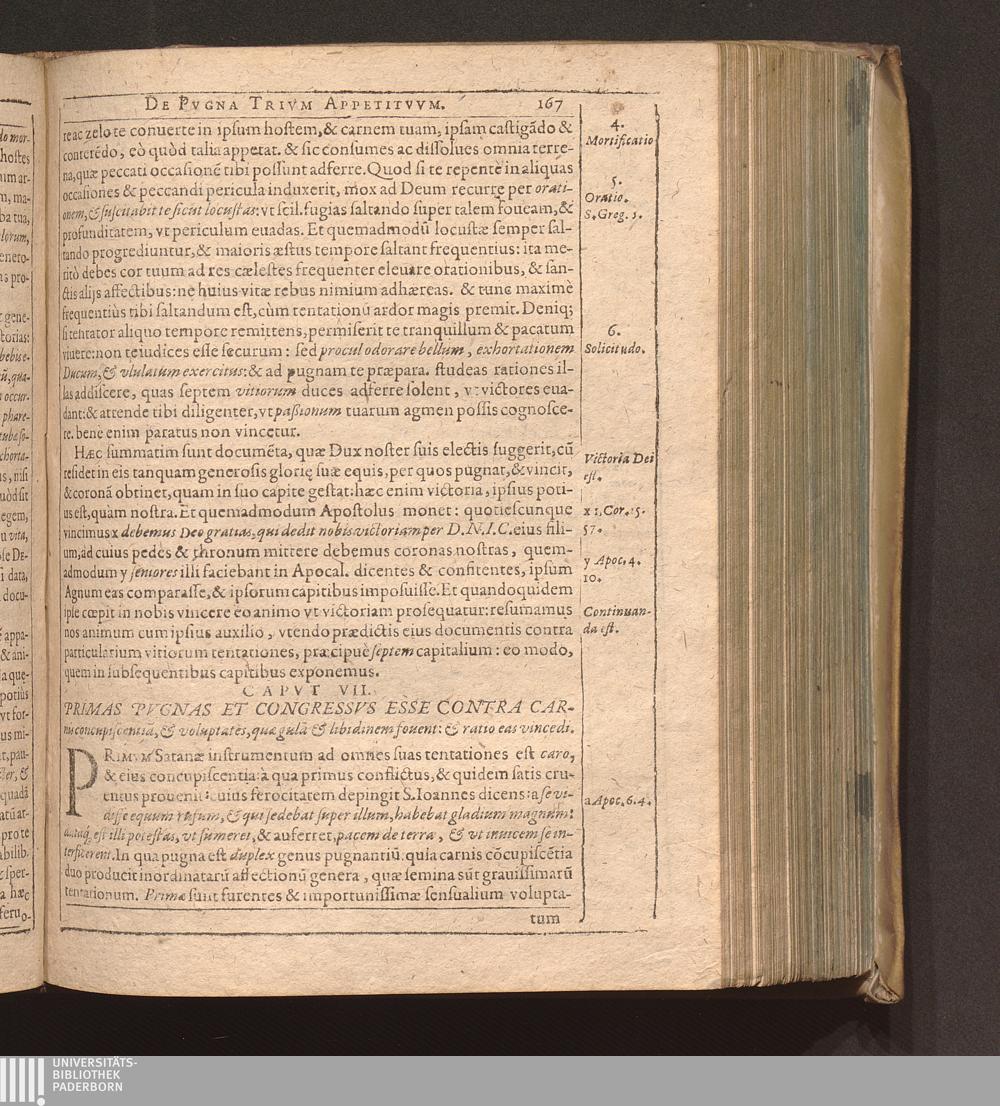 DE PVGNA TRIVM APPETITVVM. 167
re ac zelo te conuerte in ipsum hostem, & carnem tuam, ipsam castigādo &
conterēdo, eò quòd talia appetat. & sic consumes ac dissolues omnia terre-
na, quæ peccati occasionē tibi possunt adferre. Quod si te repentè in aliquas
occasiones & peccandi pericula induxerit, mox ad Deum recurre per orati-
onem, & suscitabit te sicut locustas: vt scil. fugias saltando super talem foueam, &
profunditatem, vt periculum euadas. Et quemadmodū locustæ semper sal-
tando progrediuntur, & maioris æstus tempore saltant frequentius: ita me-
ritò debes cor tuum ad res cælestes frequenter eleuare orationibus, & san-
ctis alijs affectibus: ne huius vitæ rebus nimium adhæreas. & tunc maximè
frequentiùs tibi saltandum est, cùm tentationū ardor magis premit. Deniq;
si tentator aliquo tempore remittens, permiserit te tranquillum & pacatum
viuere: non te iudices esse securum: sed procul odorare bellum, exhortationem
Ducum, & vlulatum exercitus: & ad pugnam te præpara. studeas rationes il-
las addiscere, quas septem vitiorum duces adferre solent, vt victores eua-
dant: & attende tibi diligenter, vt passionum tuarum agmen possis cognosce-
re. bene enim paratus non vincetur.
HÆC summatim sunt documēta, quæ Dux noster suis electis suggerit, cū
residet in eis tanquam generosis glorię suæ equis, per quos pugnat, & vincit,
& coronā obtinet, quam in suo capite gestat: hæc enim victoria, ipsius poti-
us est, quàm nostra. Et quemadmodum Apostolus monet: quotiescunque
vincimus x debemus Deo gratias, qui dedit nobis victoriam per D. N. I. C. eius fili-
um, ad cuius pedes & thronum mittere debemus coronas nostras, quem-
admodum y seniores illi faciebant in Apocal. dicentes & confitentes, ipsum
Agnum eas comparasse, & ipsorum capitibus imposuisse. Et quandoquidem
ipse cœpit in nobis vincere eo animo vt victoriam prosequatur: resumamus
nos animum cum ipsius auxilio, vtendo prædictis eius documentis contra
particularium vitiorum tentationes, præcipuè septem capitalium: eo modo,
quem in subsequentibus capitibus exponemus.
CAPVT VII.
PRIMAS PVGNAS ET CONGRESSVS ESSE CONTRA CAR-
nis concupiscentiā, & voluptates, quæ gulā & libidinem fouent: & ratio eas vincēdi.
PRIMVM Satanæ instrumentum ad omnes suas tentationes est caro,
& eius concupiscentia: à qua primus conflictus, & quidem satis cru-
entus prouenit: cuius ferocitatem depingit S. Ioannes dicens: a se vi-
disse equum rufum, & qui sedebat super illum, habebat gladium magnum:
datáq, est illi potestas, vt sumeret, & auferret, pacem de terra, & vt inuicem se in-
terficerent. In qua pugna est duplex genus pugnantiū: quia carnis cōcupiscētia
duo producit inordinatarū affectionū genera, quæ semina sūt grauissimarū
tentationum. Primæ sunt furentes & importunissimæ sensualium volupta-
tum
4.
Mortificatio
5.
Oratio.
S. Greg. s.
6.
Solicitudo.
Victoria Dei
est.
x 1. Cor. 15.
57.
y Apoc. 4.
10.
Continuan-
da est.
a Apoc. 6. 4.
UNIVERSITÄTS-
BIBLIOTHEK
PADERBORN